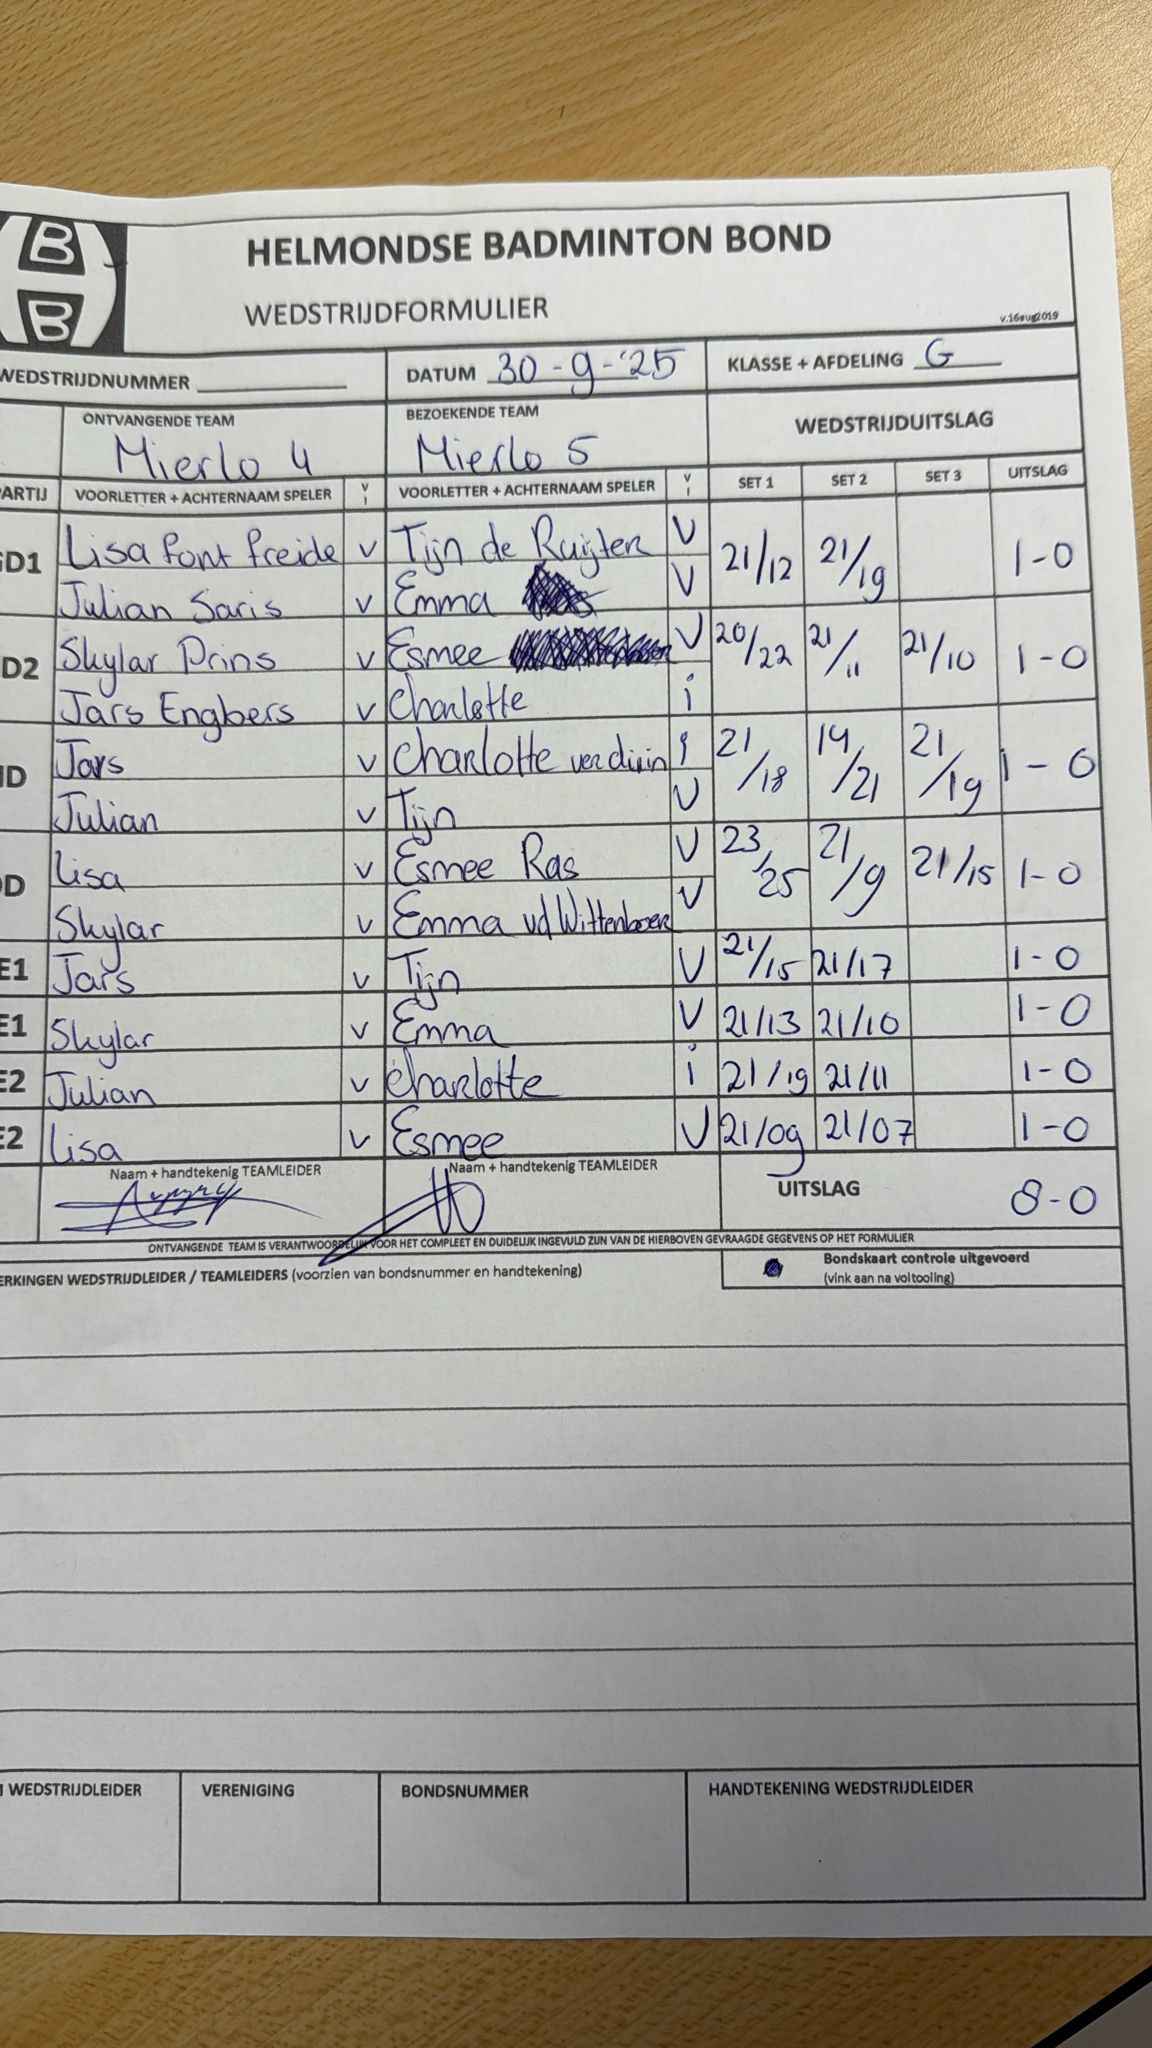 B
B
HELMONDSE BADMINTON BOND
WEDSTRIJDFORMULIER
v.16aug2019
WEDSTRIJDNUMMER
DATUM 30-9-'25
KLASSE + AFDELING G
ONTVANGENDE TEAM
Mierlo 4
BEZOEKENDE TEAM
Mierlo 5
WEDSTRIJDUITSLAG
PARTIJ VOORLETTER + ACHTERNAAM SPELER V I VOORLETTER + ACHTERNAAM SPELER V I SET 1 SET 2 SET 3 UITSLAG
GD1 Lisa font freide v Tijn de Ruijter V 21/12 21/19 1-0
Julian Saris v Emma V
D2 Skylar Prins v Esmee V 20/22 21/11 21/10 1-0
Jars Engbers v Charlotte i
D Jars v Charlotte verduin i 21/18 14/21 21/19 1-0
Julian v Tijn V
D Lisa v Esmee Ras V 23/25 21/9 21/15 1-0
Skylar v Emma vd Wittenboer V
E1 Jars v Tijn V 21/15 21/17 1-0
E1 Skylar v Emma V 21/13 21/10 1-0
E2 Julian v Charlotte i 21/19 21/11 1-0
E2 Lisa v Esmee V 21/09 21/07 1-0
Naam + handtekenig TEAMLEIDER
Naam + handtekenig TEAMLEIDER
UITSLAG 8-0
ONTVANGENDE TEAM IS VERANTWOORDELIJK VOOR HET COMPLEET EN DUIDELIJK INGEVULD ZIJN VAN DE HIERBOVEN GEVRAAGDE GEGEVENS OP HET FORMULIER
ERKINGEN WEDSTRIJDLEIDER / TEAMLEIDERS (voorzien van bondsnummer en handtekening)
Bondskaart controle uitgevoerd
(vink aan na voltooiing)
WEDSTRIJDLEIDER
VERENIGING
BONDSNUMMER
HANDTEKENING WEDSTRIJDLEIDER